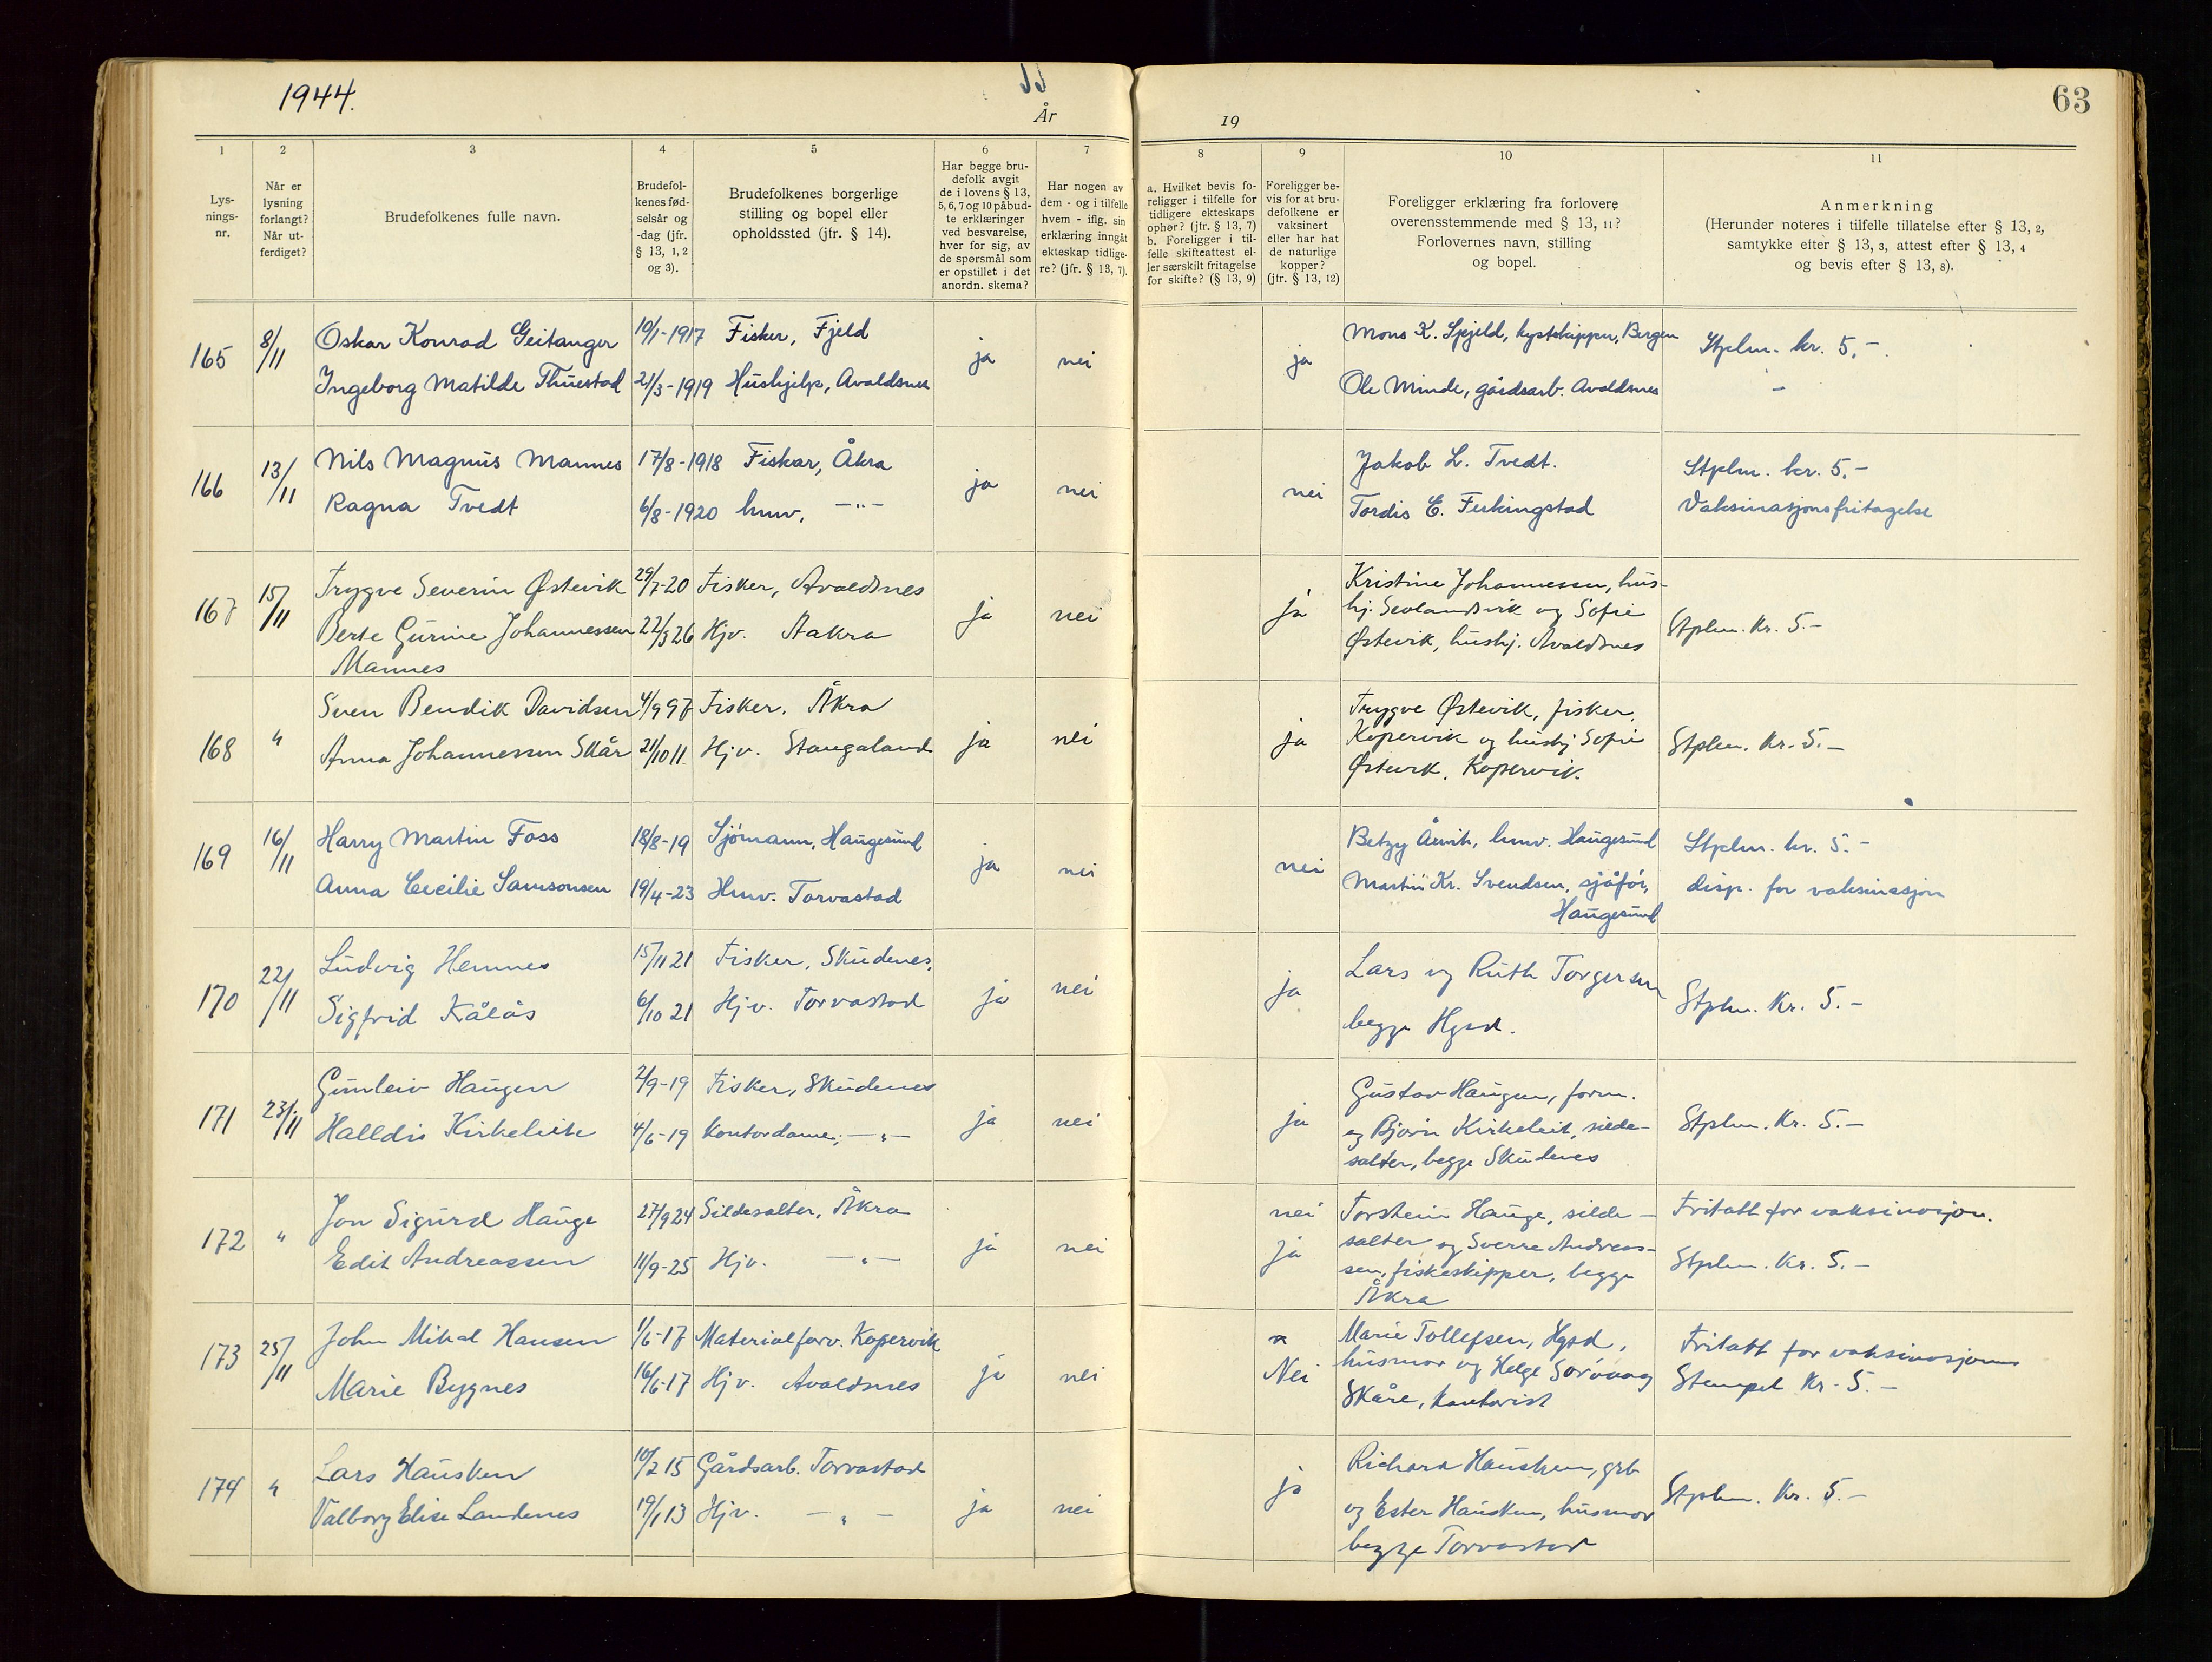 1944.
År
19
63
1
2
3
4
5
6
7
8
9
10
11
Lys-
nings-
nr.
Når er
lysning
forlangt?
Når ut-
ferdiget?
Brudefolkenes fulle navn.
Brudefol-
kenes fød-
selsår og
-dag (jfr.
§ 13, 1, 2
og 3).
Brudefolkenes borgerlige
stilling og bopel eller
opholdssted (jfr. § 14).
Har begge bru-
defolk avgit
de i lovens § 13,
5, 6, 7 og 10 påbud-
te erklæringer
ved besvarelse,
hver for sig, av
de spørsmål som
er opstillet i det
anordn. skema?
Har nogen av
dem - og i tilfelle
hvem - iflg. sin
erklæring inngåt
ekteskap tidlige-
re? (jfr. § 13, 7).
a. Hvilket bevis fo-
religger i tilfelle for
tidligere ekteskaps
ophør? (jfr. § 13, 7)
b. Foreligger i til-
felle skifteattest el-
ler særskilt fritagelse
for skifte? (§ 13, 9)
Foreligger be-
vis for at bru-
defolkene er
vaksinert
eller har hat
de naturlige
kopper?
(jfr. § 13, 12)
Foreligger erklæring fra forlovere
overensstemmende med § 13, 11?
Forlovernes navn, stilling
og bopel.
Anmerkning
(Herunder noteres i tilfelle tillatelse efter § 13, 2,
samtykke efter § 13, 3, attest efter § 13, 4
og bevis efter § 13, 8).
165 8/11 Oskar Konrad Geitanger 10/1-1917 Fisker, Fjeld ja nei ja Mons K. Spjeld, kystskipper, Bergen Stplm. kr. 5,-
Ingeborg Matilde Thuestad 21/3-1919 Hushjelp, Avaldsnes Ole Minde, gårdsarb. Avaldsnes -
166 13/11 Nils Magnus Mannes 17/8-1918 Fiskar, Åkra ja nei nei Jakob L. Tvedt. Stplm. kr. 5.-
Ragna Tvedt 6/8-1920 hmv. -"- Tordis E. Ferkingstad Vaksinasjonsfritagelse
167 15/11 Trygve Severin Østevik 29/7-20 Fisker, Avaldsnes ja nei ja Kristine Johannessen, hus-
Berte Gurine Johannessen 22/3 26 Hjv. Aakra hj. Sevlandsvik og Sofie Stplm. Kr. 5.-
Mannes Østevik, hushj. Avaldsnes
168 " Sven Bendik Davidsen 4/9 97 Fisker. Åkra ja nei ja Trygve Østevik, fisker,
Anna Johannessen Skår 21/10 11 Hjv. Stangaland Kopervik og hushj Sofie Stplm. Kr. 5.-
Østevik, Kopervik.
169 16/11 Harry Martin Foss 18/8-19 Sjömann, Haugesund ja nei nei Betzy hmv. Haugesund Stplm. kr. 5.-
Anna Cecilie Samsonsen 19/4-23 Hmv. Torvastad Martin Kr. Svendsen, sjåför, disp. for vaksinasjon
Haugesund
170 22/11 Ludvig Hemnes 15/11 21 Fisker, Skudenes, ja nei ja Lars og Ruth Torgersen
Sigfrid Kålås 6/10 21 Hjv. Torvastad begge Hgsd. Stplm. Kr. 5.-
171 23/11 Gunleiv Haugen 2/9-19 Fisker, Skudenes ja nei ja Gustav Haugen, form.
Halldis Kirkeleite 4/6-19 kontordame, -"- og Bjørn Kirkeleit, silde- Stplm. Kr. 5.-
salter, begge Skudenes
172 " Jon Sigurd Hauge 27/9 24 Sildesalter, Åkra ja nei nei Torstein Hauge, silde- Fritatt for vaksinasjon.
Edit Andreassen 11/9-25 Hjv. -"- ja salter og Sverre Andreas- Stplm. Kr. 5.-
sen, fiskeskipper, begge
Åkra
173 25/11 John Mikal Hansen 1/6-17 Materialforv. Kopervik ja nei Marie Tollefsen, Hgsd, Fritatt for vaksinasjonen
Marie Bygnes 16/6-17 Hjv. Avaldsnes Nei husmor og Helge Sørvaag Stempel Kr. 5.-
Skåre, kontorist
174 " Lars Hausken 10/2 15 Gårdsarb. Torvastad ja nei ja Richard Hausken, grb
Valborg Elise Landenes 19/1 13 Hjv. -"- og Ester Hausken, husmor Stplm. Kr. 5.-
begge Torvastad